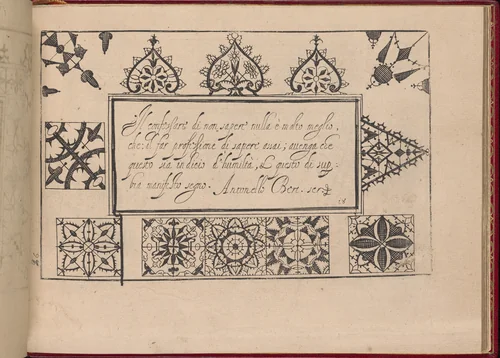 Il confessare di non sapere nulla è molto meglio,
che al far professione di sapere assai; auenga che
questo sia indicio d'humiltà, & questo di sup
bia manifesto segno. Antonello Bert. scr.